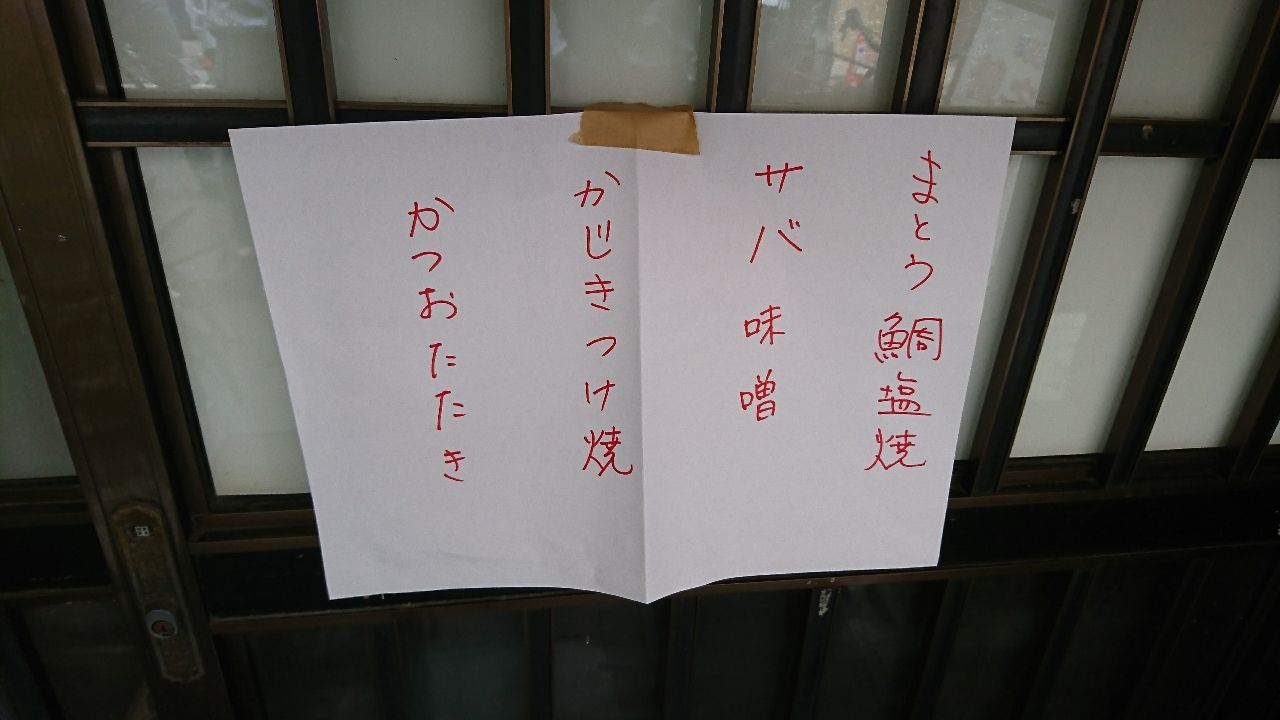 まとう鯛塩焼
サバ味噌
かじきつけ焼
かつおたたき